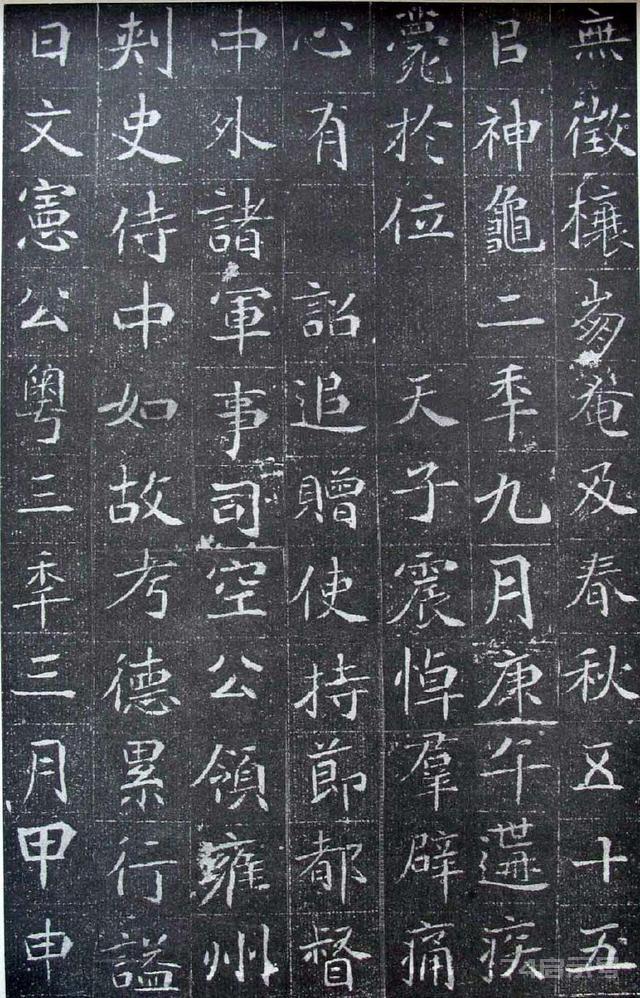 無徵榱崩奄及春秋五十五
㠯神龜二秊九月庚午遘疾
薨於位 天子震悼羣辟痛
心有 詔追贈使持節都督
中外諸軍事司空公領雍州
刾史侍中如故考德累行謚
曰文憲公粵三秊三月甲申